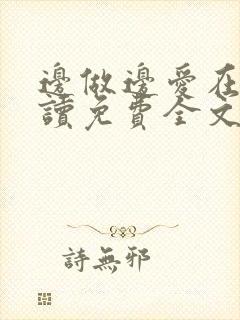 邊做邊愛在
讀免費全文
詩無邪